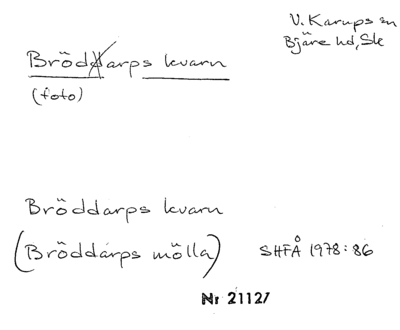 V. Karups sn
Bjäre hd, Sk
Bröddarps kvarn
(foto)
Bröddarps kvarn
(Bröddarps mölla) SHFÅ 1978:86
Nr 21127